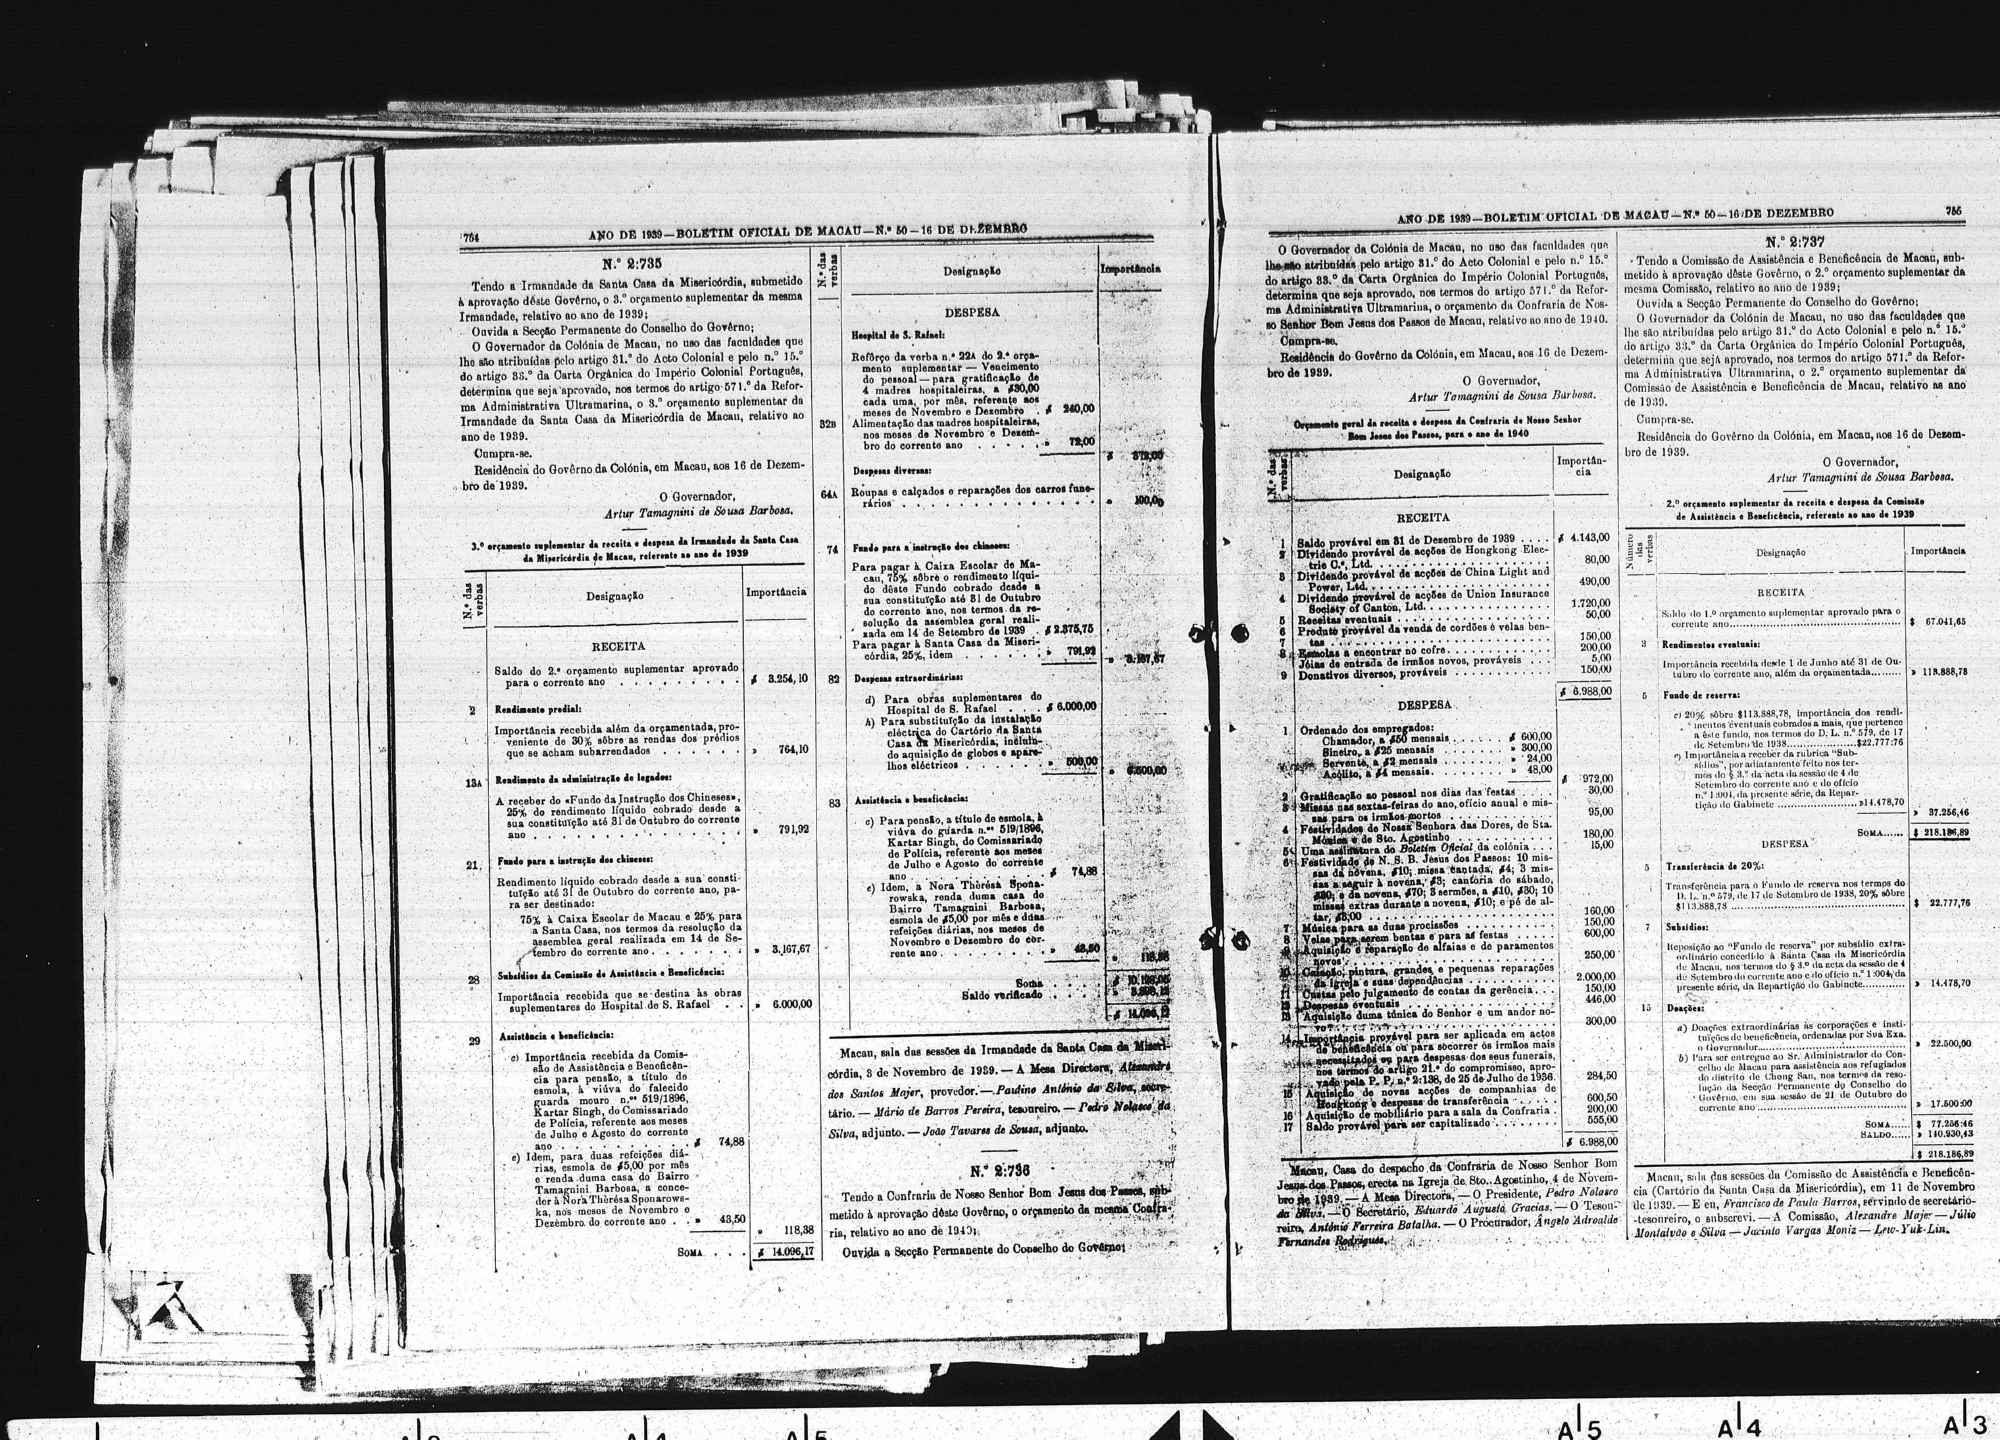 754
ANO DE 1939—BOLETIM OFICIAL DE MACAU—N.º 50—16 DE DEZEMBRO
N.º 2:735
Tendo a Irmandade da Santa Casa da Misericórdia, submetido
à aprovação dêste Govêrno, o 3.º orçamento suplementar da mesma
Irmandade, relativo ao ano de 1939;
Ouvida a Secção Permanente do Conselho do Govêrno;
O Governador da Colónia de Macau, no uso das faculdades que
lhe são atribuídas pelo artigo 31.º do Acto Colonial e pelo n.º 15.º
do artigo 33.º da Carta Orgânica do Império Colonial Português,
determina que seja aprovado, nos termos do artigo 571.º da Refor-
ma Administrativa Ultramarina, o 3.º orçamento suplementar da
Irmandade da Santa Casa da Misericórdia de Macau, relativo ao
ano de 1939.
Cumpra-se.
Residência do Govêrno da Colónia, em Macau, aos 16 de Dezem-
bro de 1939.
O Governador,
Artur Tamagnini de Sousa Barbosa.
3.º orçamento suplementar da receita e despesa da Irmandade da Santa Casa
da Misericórdia de Macau, referente ao ano de 1939
N.º das verbas Designação Importância
RECEITA
Saldo do 2.º orçamento suplementar aprovado
para o corrente ano . . . . . . . . $ 3.254,10
2 Rendimento predial:
Importância recebida além da orçamentada, pro-
veniente de 30% sôbre as rendas dos prédios
que se acham subarrendados . . . . . . » 764,10
13A Rendimento da administração de legados:
A receber do «Fundo da Instrução dos Chineses»,
25% do rendimento líquido cobrado desde a
sua constituïção até 31 de Outubro do corrente
ano . . . . . . . . . . . . . . » 791,92
21 Fundo para a instrução dos chineses:
Rendimento líquido cobrado desde a sua consti-
tuïção até 31 de Outubro do corrente ano, pa-
ra ser destinado:
75% à Caixa Escolar de Macau e 25% para
a Santa Casa, nos termos da resolução da
assemblea geral realizada em 14 de Se-
tembro do corrente ano . . . . . . . » 3.167,67
28 Subsídios da Comissão de Assistência e Beneficência:
Importância recebida que se destina às obras
suplementares do Hospital de S. Rafael . . » 6.000,00
29 Assistência e beneficência:
c) Importância recebida da Comis-
são de Assistência e Beneficên-
cia para pensão, a título de
esmola, à viúva do falecido
guarda mouro n.ºs 519/1896,
Kartar Singh, do Comissariado
de Polícia, referente aos meses
de Julho e Agosto do corrente
ano . . . . . . . . . . $ 74,88
e) Idem, para duas refeições diá-
rias, esmola de $5,00 por mês
e renda duma casa do Bairro
Tamagnini Barbosa, a conce-
der à Nora Thèrésa Sponarows-
ka, nos meses de Novembro e
Dezembro do corrente ano . . » 43,50
» 118,38
SOMA . . . $ 14.096,17
N.º das verbas Designação Importância
DESPESA
Hospital de S. Rafael:
Refôrço da verba n.º 22A do 2.º orça-
mento suplementar — Vencimento
do pessoal — para gratificação de
4 madres hospitaleiras, a $30,00
cada uma, por mês, referente aos
meses de Novembro e Dezembro . $ 240,00
32B Alimentação das madres hospitaleiras,
nos meses de Novembro e Dezem-
bro do corrente ano . . . . . » 72,00
$ 312,00
Despesas diversas:
64A Roupas e calçados e reparações dos carros fune-
rários . . . . . . . . . . . . . » 100,00
74 Fundo para a instrução dos chineses:
Para pagar à Caixa Escolar de Ma-
cau, 75% sôbre o rendimento líqui-
do dêste Fundo cobrado desde a
sua constituïção até 31 de Outubro
do corrente ano, nos termos da re-
solução da assemblea geral reali-
zada em 14 de Setembro de 1939 . $ 2.375,75
Para pagar à Santa Casa da Miseri-
córdia, 25%, idem . . . . . . » 791,92
» 3.167,67
82 Despesas extraordinárias:
d) Para obras suplementares do
Hospital de S. Rafael . . . $ 6.000,00
h) Para substituïção da instalação
eléctrica do Cartório da Santa
Casa da Misericórdia, incluïn-
do aquisição de globos e apare-
lhos eléctricos . . . . . . » 500,00
» 6.500,00
83 Assistência e beneficência:
c) Para pensão, a título de esmola, à
viúva do guarda n.ºs 519/1896,
Kartar Singh, do Comissariado
de Polícia, referente aos meses
de Julho e Agosto do corrente
ano . . . . . . . . . . $ 74,88
e) Idem, a Nora Thèrésa Spona-
rowska, renda duma casa do
Bairro Tamagnini Barbosa,
esmola de $5,00 por mês e duas
refeições diárias, nos meses de
Novembro e Dezembro do cor-
rente ano . . . . . . . . » 43,50
» 118,38
Soma . . . $
Saldo verificado . . . . »
$ 14.096,17
Macau, sala das sessões da Irmandade da Santa Casa da Miseri-
córdia, 3 de Novembro de 1939. — A Mesa Directora, Alexandre
dos Santos Majer, provedor. — Paulino António da Silva, secre-
tário. — Mário de Barros Pereira, tesoureiro. — Pedro Nolasco da
Silva, adjunto. — João Tavares de Sousa, adjunto.
N.º 2:736
Tendo a Confraria de Nosso Senhor Bom Jesus dos Passos, sub-
metido à aprovação dêste Govêrno, o orçamento da mesma Confra-
ria, relativo ao ano de 1940;
Ouvida a Secção Permanente do Conselho do Govêrno;
ANO DE 1939—BOLETIM OFICIAL DE MACAU—N.º 50—16 DE DEZEMBRO
755
O Governador da Colónia de Macau, no uso das faculdades que
lhe são atribuídas pelo artigo 31.º do Acto Colonial e pelo n.º 15.º
do artigo 33.º da Carta Orgânica do Império Colonial Português,
determina que seja aprovado, nos termos do artigo 571.º da Refor-
ma Administrativa Ultramarina, o orçamento da Confraria de Nos-
so Senhor Bom Jesus dos Passos de Macau, relativo ao ano de 1940.
Cumpra-se.
Residência do Govêrno da Colónia, em Macau, aos 16 de Dezem-
bro de 1939.
O Governador,
Artur Tamagnini de Sousa Barbosa.
Orçamento geral da receita e despesa da Confraria de Nosso Senhor
Bom Jesus dos Passos, para o ano de 1940
N.º das verbas Designação Importân-
cia
RECEITA
1 Saldo provável em 31 de Dezembro de 1939 . . . . $ 4.143,00
2 Dividendo provável de acções de Hongkong Elec-
tric C.º, Ltd. . . . . . . . . . 80,00
3 Dividendo provável de acções de China Light and
Power, Ltd. . . . . . . . . . 490,00
4 Dividendo provável de acções de Union Insurance
Society of Canton, Ltd. . . . . . . . 1.720,00
5 Receitas eventuais . . . . . . . . 50,00
6 Produto provável da venda de cordões e velas ben-
tas . . . . . . . . . . 150,00
7 Esmolas a encontrar no cofre . . . . . . 200,00
8 Jóias de entrada de irmãos novos, prováveis . . . 5,00
9 Donativos diversos, prováveis . . . . . . 150,00
$ 6.988,00
DESPESA
1 Ordenado dos empregados:
Chamador, a $50 mensais . . . . . $ 600,00
Sineiro, a $25 mensais . . . . . » 300,00
Servente, a $2 mensais . . . . . » 24,00
Acólito, a $4 mensais . . . . . » 48,00
$ 972,00
2 Gratificação ao pessoal nos dias das festas . . . . 30,00
3 Missas nas sextas-feiras do ano, ofício anual e mis-
sas para os irmãos mortos . . . . . . 95,00
4 Festividades de Nossa Senhora das Dores, de Sta.
Mónica e de Sto. Agostinho . . . . . . 180,00
5 Uma assinatura do Boletim Oficial da colónia . . . 15,00
6 Festividade de N. S. B. Jesus dos Passos: 10 mis-
sas da novena, $10; missa cantada, $4; 3 mis-
sas a seguir à novena, $3; cantoria do sábado,
$20; e da novena, $70; 3 sermões, a $10, $30; 10
missas extras durante a novena, $10; e pé de al-
tar, $3,00 . . . . . . . . . 160,00
7 Música para as duas procissões . . . . . 150,00
8 Velas para serem bentas e para as festas . . . . 600,00
9 Aquisição e reparação de alfaias e de paramentos
novos . . . . . . . . . 250,00
10 Caiação, pintura, grandes e pequenas reparações
da Igreja e suas dependências . . . . . . 2.000,00
11 Custas pelo julgamento de contas da gerência . . . 150,00
12 Despesas eventuais . . . . . . . . 446,00
13 Aquisição duma túnica do Senhor e um andor no-
vo . . . . . . . . . . 300,00
14 Importância provável para ser aplicada em actos
de beneficência ou para socorrer os irmãos mais
necessitados ou para despesas dos seus funerais,
nos termos do artigo 21.º do compromisso, apro-
vado pela P. P. n.º 2:138, de 25 de Julho de 1936. 284,50
15 Aquisição de novas acções de companhias de
Hongkong e despesas de transferência . . . . . 600,50
16 Aquisição de mobiliário para a sala da Confraria . 200,00
17 Saldo provável para ser capitalizado . . . . . 555,00
$ 6.988,00
Macau, Casa do despacho da Confraria de Nosso Senhor Bom
Jesus dos Passos, erecta na Igreja de Sto. Agostinho, 4 de Novem-
bro de 1939. — A Mesa Directora, — O Presidente, Pedro Nolasco
da Silva. — O Secretário, Eduardo Augusto Gracias. — O Tesou-
reiro, António Ferreira Batalha. — O Procurador, Ângelo Adroaldo
Fernandes Rodrigues.
N.º 2:737
Tendo a Comissão de Assistência e Beneficência de Macau, sub-
metido à aprovação dêste Govêrno, o 2.º orçamento suplementar da
mesma Comissão, relativo ao ano de 1939;
Ouvida a Secção Permanente do Conselho do Govêrno;
O Governador da Colónia de Macau, no uso das faculdades que
lhe são atribuídas pelo artigo 31.º do Acto Colonial e pelo n.º 15.º
do artigo 33.º da Carta Orgânica do Império Colonial Português,
determina que seja aprovado, nos termos do artigo 571.º da Refor-
ma Administrativa Ultramarina, o 2.º orçamento suplementar da
Comissão de Assistência e Beneficência de Macau, relativo ao ano
de 1939.
Cumpra-se.
Residência do Govêrno da Colónia, em Macau, aos 16 de Dezem-
bro de 1939.
O Governador,
Artur Tamagnini de Sousa Barbosa.
2.º orçamento suplementar da receita e despesa da Comissão
de Assistência e Beneficência, referente ao ano de 1939
Número das verbas Designação Importância
RECEITA
Saldo do 1.º orçamento suplementar aprovado para o
corrente ano.................... $ 67.041,65
3 Rendimentos eventuais:
Importância recebida desde 1 de Junho até 31 de Ou-
tubro do corrente ano, além da orçamentada......... » 113.888,78
5 Fundo de reserva:
c) 20% sôbre $113.888,78, importância dos rendi-
mentos eventuais cobrados a mais, que pertence
a êste fundo, nos termos do D. L. n.º 579, de 17
de Setembro de 1938....................$22.777:76
e) Importância a receber da rubrica "Sub-
sídios", por adiantamento feito nos ter-
mos do § 3.º da acta da sessão de 4 de
Setembro do corrente ano e do ofício
n.º 1:004, da presente série, da Repar-
tição do Gabinete .................... »14.478,70
» 37.256,46
SOMA...... $ 218.186,89
DESPESA
5 Transferência de 20%:
Transferência para o Fundo de reserva nos termos do
D. L. n.º 579, de 17 de Setembro de 1938, 20% sôbre
$113.888,78 .................... $ 22.777,76
7 Subsídios:
Reposição ao "Fundo de reserva" por subsídio extra-
ordinário concedido à Santa Casa da Misericórdia
de Macau, nos termos do § 3.º da acta da sessão de 4
de Setembro do corrente ano e do ofício n.º 1:004, da
presente série, da Repartição do Gabinete............ » 14.478,70
15 Doações:
a) Doações extraordinárias às corporações e insti-
tuïções de beneficência, ordenadas por Sua Exa.
o Governador.................... » 22.500,00
b) Para ser entregue ao Sr. Administrador do Con-
celho de Macau para assistência aos refugiados
do distrito de Chong San, nos termos da reso-
lução da Secção Permanente do Conselho do
Govêrno, em sua sessão de 21 de Outubro do
corrente ano .................... » 17.500:00
SOMA...... $ 77.256:46
SALDO...... » 140.930,43
$ 218.186,89
Macau, sala das sessões da Comissão de Assistência e Beneficên-
cia (Cartório da Santa Casa da Misericórdia), em 11 de Novembro
de 1939. — E eu, Francisco de Paula Barros, servindo de secretário-
-tesoureiro, o subscrevi. — A Comissão, Alexandre Majer — Júlio
Montalvão e Silva — Jacinto Vargas Moniz — Lew-Yuk-Lin.
A5 A5 A4 A3